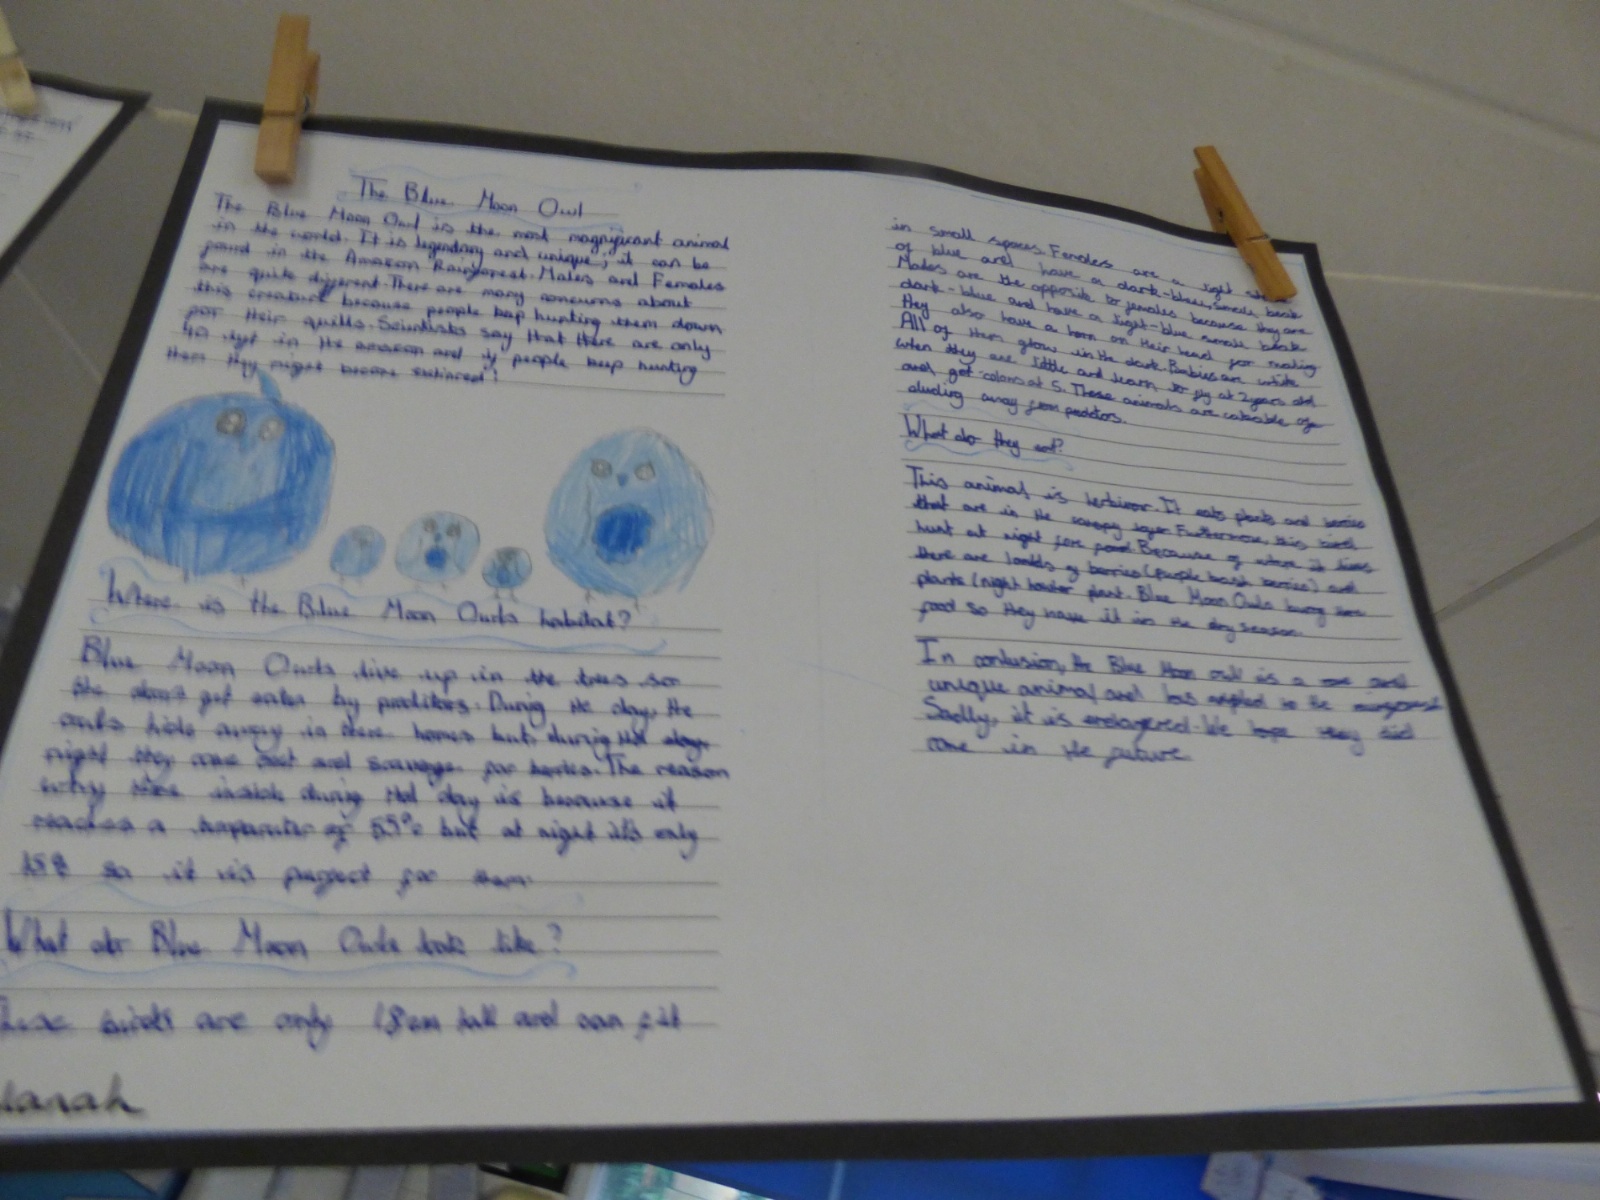 The Blue Moon Owl
The Blue Moon Owl is the most magnificant animal
in the world. It is legendary and unique; it can be
found in the Amazon Rainforest. Males and Females
are quite different. There are many concerns about
this creature because people kep hunting them down
for their quills. Scientists say that there are only
40 left in the amazon and if people keep hunting
them they might become
Where is the Blue Moon Owls habitat?
Blue Moon Owls live up in the trees so
the don't get eaten by preditors. During the day, the
owls hide away in there homes but during the
night they come out and scavenge for berries. The reason
why there inside during the day is because it
reaches a of 55°c but at night it's only
15°c so it is perfect for them
What do Blue Moon Owls look like?
These birds are only 18cm tall and can fit
in small spaces. Females are a light
of blue and have a dark-blue, small beak
Males are the opposite to females because they are
dark-blue and have a light-blue small beak
they also have a horn on their head for mating
All of them glow in the dark. Babies are white
when they are little and learn to fly at 2 years old
and get colors at 5. These animals are of
away from
What do they eat?
This animal is It eats plants and berries
that are in the canopy layer. Furthermore, this bird
hunt at night for food. Because of where it lives
there are of berries (Purple berries) and
plants (night plant. Blue Moon Owls
food so they have it in the dry season.
In the Blue Moon owl is a
unique animal and has to the
Sadly, it is endagered. We hope they
come in the future